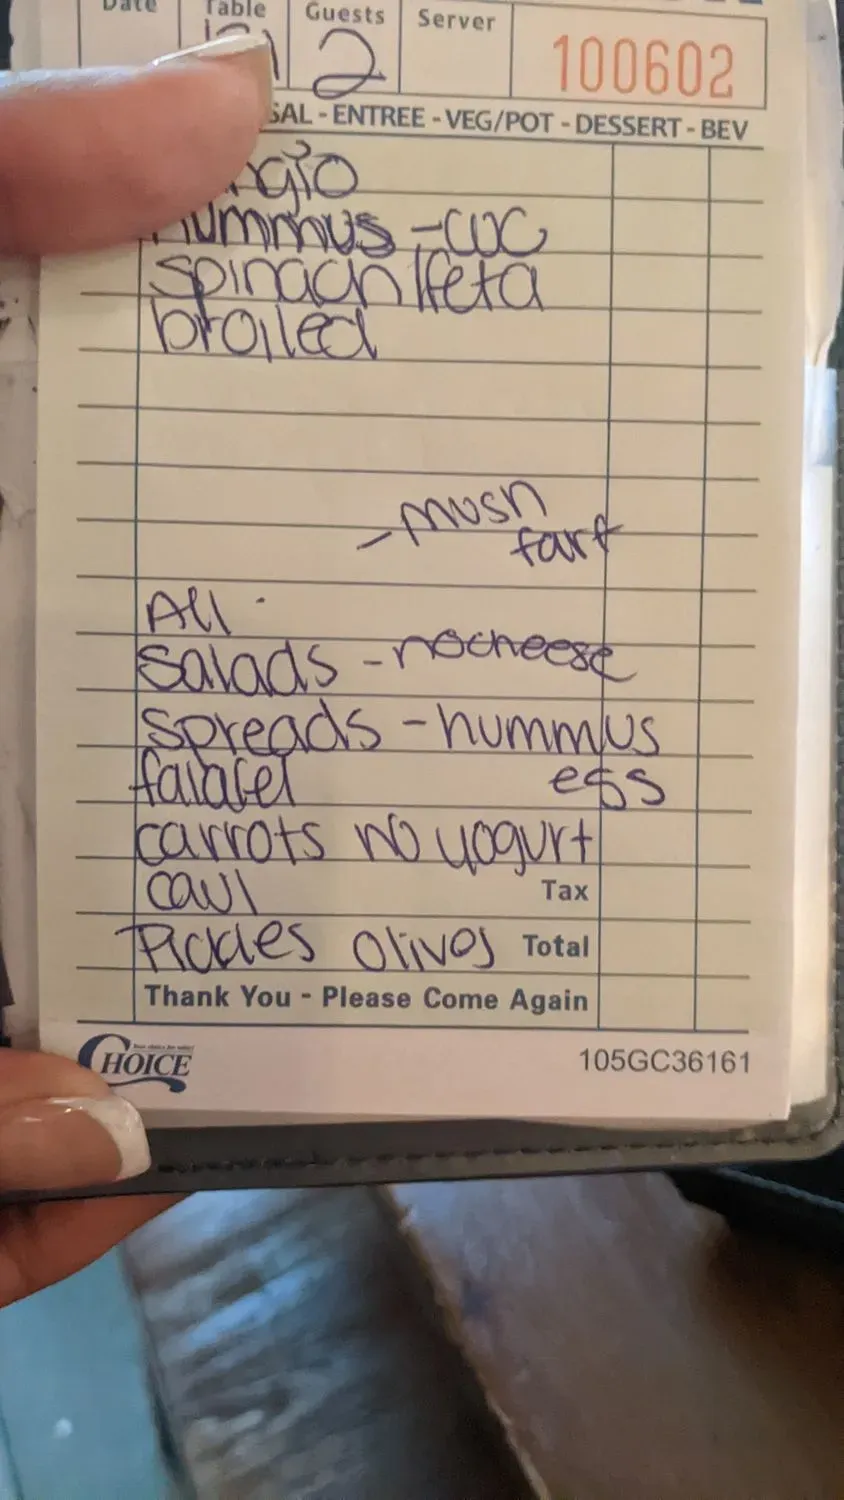 Date Table Guests Server
2 100602
SAL - ENTREE - VEG/POT - DESSERT - BEV
hummus - cuc
spinach/feta
broiled
- mush
tart
All
salads - no cheese
spreads - hummus
falafel egg
carrots no yogurt
caul Tax
Pickles Olives Total
Thank You - Please Come Again
CHOICE 105GC36161